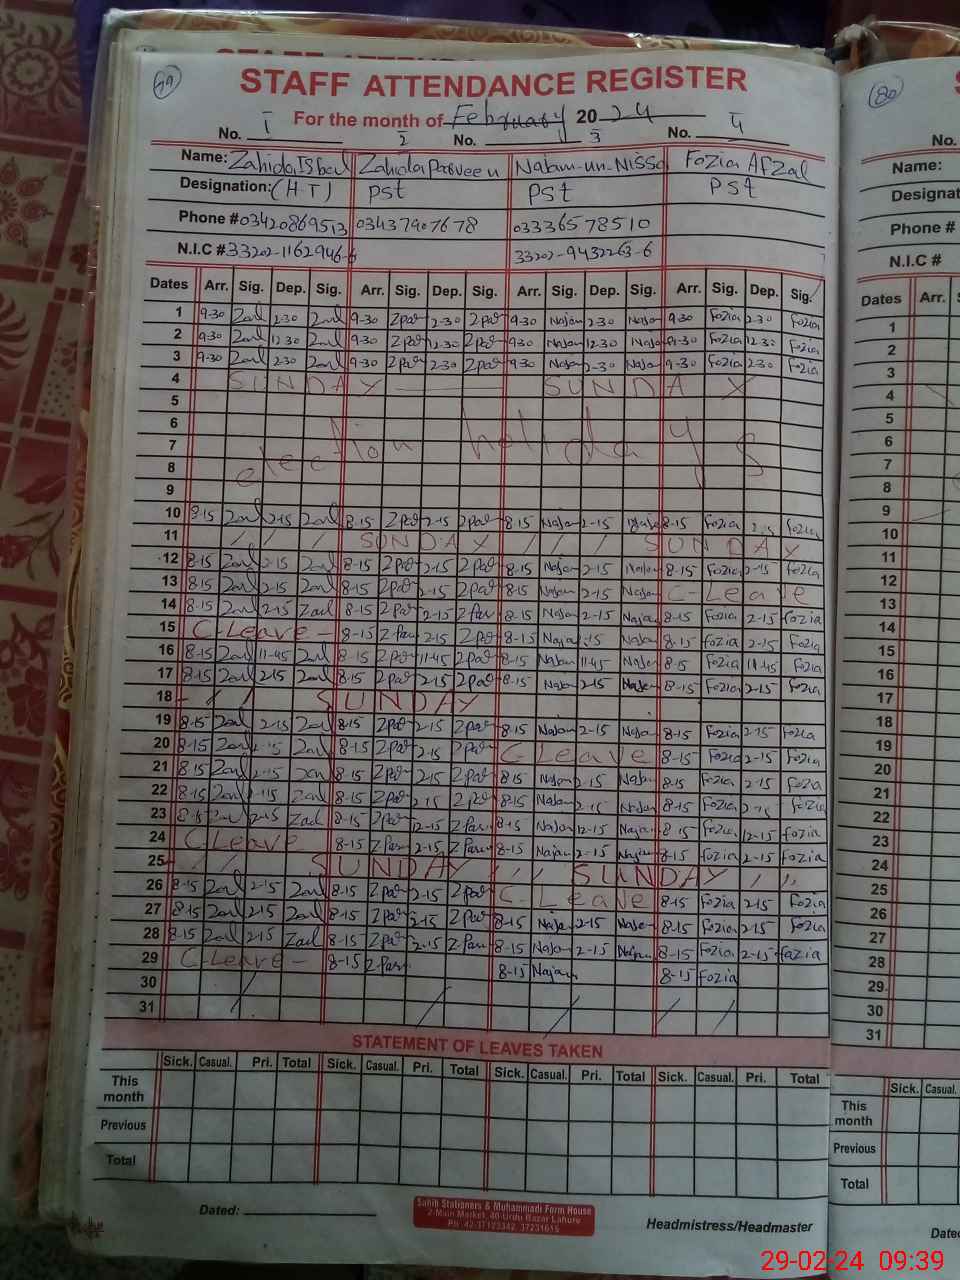 STAFF ATTENDANCE REGISTER
79
For the month of February 2024
No. 1 2 No. 3 No. 4
Name: Zahida Isbal Zahida Parveen Najam-un-Nissa Fozia Afzal
Designation: (H-T) Pst Pst Pst
Phone # 03420869513 03437907678 03336578510
N.I.C # 33202-1162946-6 33202-9432263-6
Dates Arr. Sig. Dep. Sig. Arr. Sig. Dep. Sig. Arr. Sig. Dep. Sig. Arr. Sig. Dep. Sig.
1 9-30 2-30 9-30 Zpar 2-30 Zpar 9-30 Najam 2-30 Najam 9-30 Fozia 2-30 Fozia
2 9-30 12-30 9-30 Zpar 12-30 Zpar 9-30 Najam 12-30 Najam 9-30 Fozia 12-30 Fozia
3 9-30 2-30 9-30 Zpar 2-30 Zpar 9-30 Najam 2-30 Najam 9-30 Fozia 2-30 Fozia
4 SUNDAY SUNDAY
5
6
7 election holidays
8
9
10 8-15 2-15 8-15 Zpar 2-15 Zpar 8-15 Najam 2-15 8-15 Fozia 2-15 Fozia
11 SUNDAY SUNDAY
12 8-15 2-15 8-15 Zpar 2-15 Zpar 8-15 Najam 2-15 Najam 8-15 Fozia 2-15 Fozia
13 8-15 2-15 8-15 Zpar 2-15 Zpar 8-15 Najam 2-15 Najam C-Leave
14 8-15 2-15 8-15 Zpar 2-15 Zpar 8-15 Najam 2-15 Najam 8-15 Fozia 2-15 Fozia
15 C-Leave - 8-15 Zpar 2-15 Zpar 8-15 Najam Najam 8-15 Fozia 2-15 Fozia
16 8-15 11-45 8-15 Zpar 11-45 Zpar 8-15 Najam 11-45 Najam 8-15 Fozia 11-45 Fozia
17 8-15 2-15 8-15 Zpar 2-15 Zpar 8-15 Najam 2-15 Najam 8-15 Fozia 2-15 Fozia
18 SUNDAY
19 8-15 2-15 8-15 Zpar 2-15 Zpar 8-15 Najam 2-15 Najam 8-15 Fozia 2-15 Fozia
20 8-15 2-15 8-15 Zpar 2-15 Zpar C Leave 8-15 Fozia 2-15 Fozia
21 8-15 2-15 8-15 Zpar 2-15 Zpar 8-15 Najam 2-15 Najam 8-15 Fozia 2-15 Fozia
22 8-15 2-15 8-15 Zpar 2-15 Zpar 8-15 Najam 2-15 Najam 8-15 Fozia 2-15 Fozia
23 8-15 8-15 Zpar 12-15 Zpar 8-15 Najam 12-15 Najam 8-15 Fozia 12-15 Fozia
24 C Leave 8-15 Zpar 2-15 Zpar 8-15 Najam 2-15 Najam 8-15 Fozia 2-15 Fozia
25 SUNDAY SUNDAY
26 8-15 2-15 8-15 Zpar 2-15 Zpar C-Leave 8-15 Fozia 2-15 Fozia
27 8-15 2-15 8-15 Zpar 2-15 Zpar 8-15 Najam 2-15 Najam 8-15 Fozia 2-15 Fozia
28 8-15 2-15 8-15 Zpar 2-15 Zpar 8-15 Najam 2-15 Najam 8-15 Fozia 2-15 Fozia
29 C-Leave - 8-15 Zpar 8-15 Najam 8-15 Fozia
30
31
STATEMENT OF LEAVES TAKEN
Sick. Casual. Pri. Total Sick. Casual. Pri. Total Sick. Casual. Pri. Total Sick. Casual. Pri. Total
This month
Previous
Total
Dated:
Sahib Stationers & Muhammadi Form House
2-Main Market, 40-Urdu Bazar Lahore
Ph: 42-37123342, 37231615
Headmistress/Headmaster
80
S
No.
Name:
Designat
Phone #
N.I.C #
Dates Arr. S
1
2
3
4
5
6
7
8
9
10
11
12
13
14
15
16
17
18
19
20
21
22
23
24
25
26
27
28
29
30
31
Sick. Casual
This month
Previous
Total
Date
29-02-24 09:39